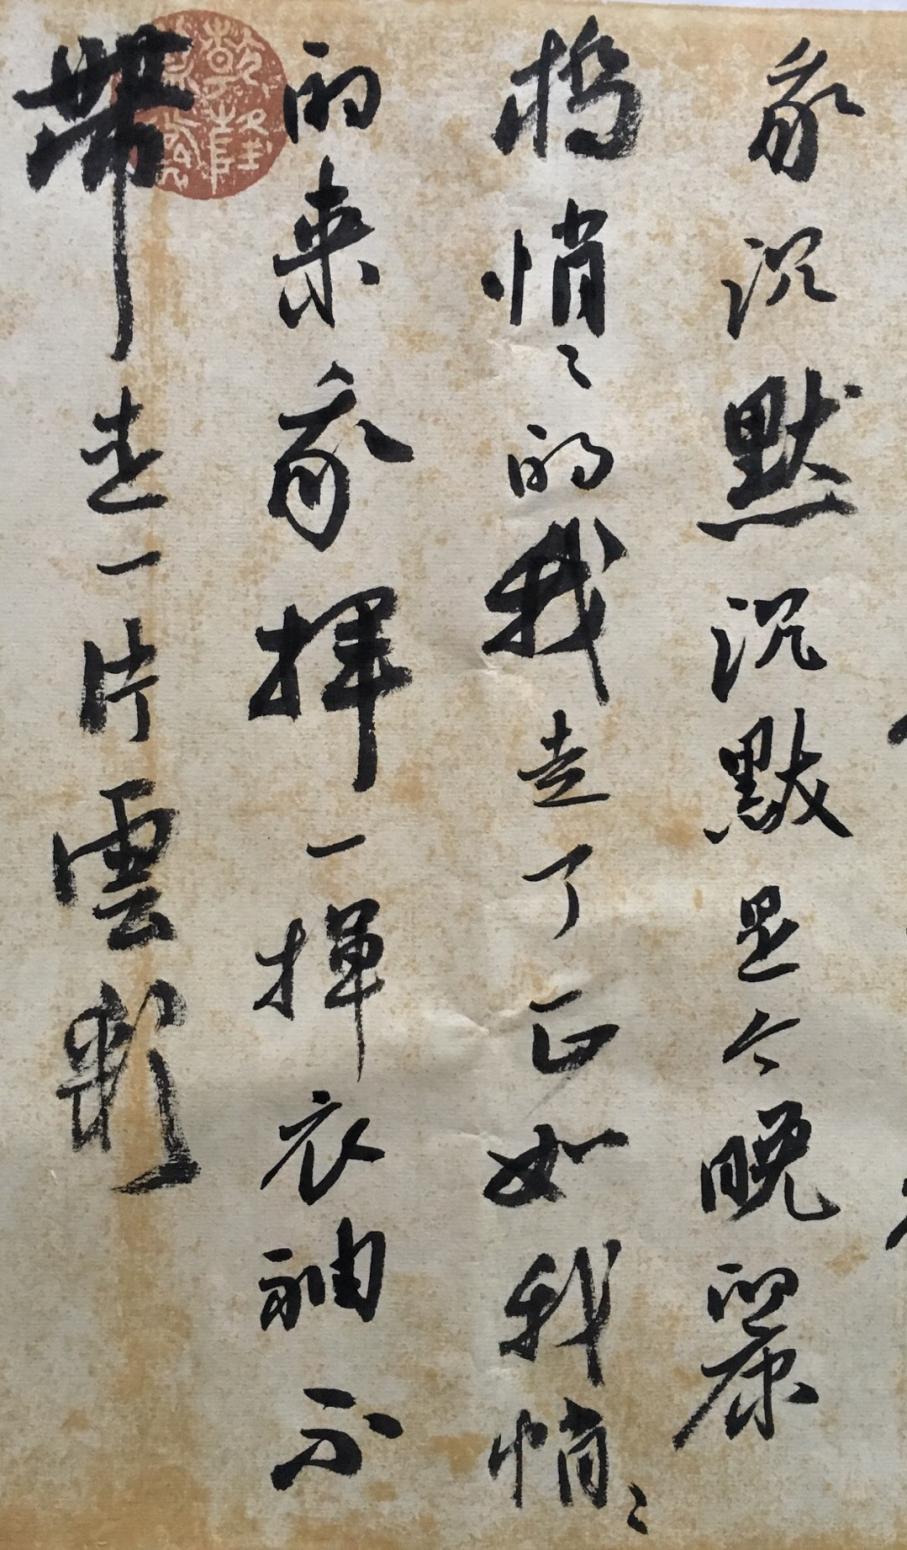 我沉默沉默是今晚的康
橋悄々的我走了正如我悄々
的來我揮一揮衣袖不
帶走一片雲彩